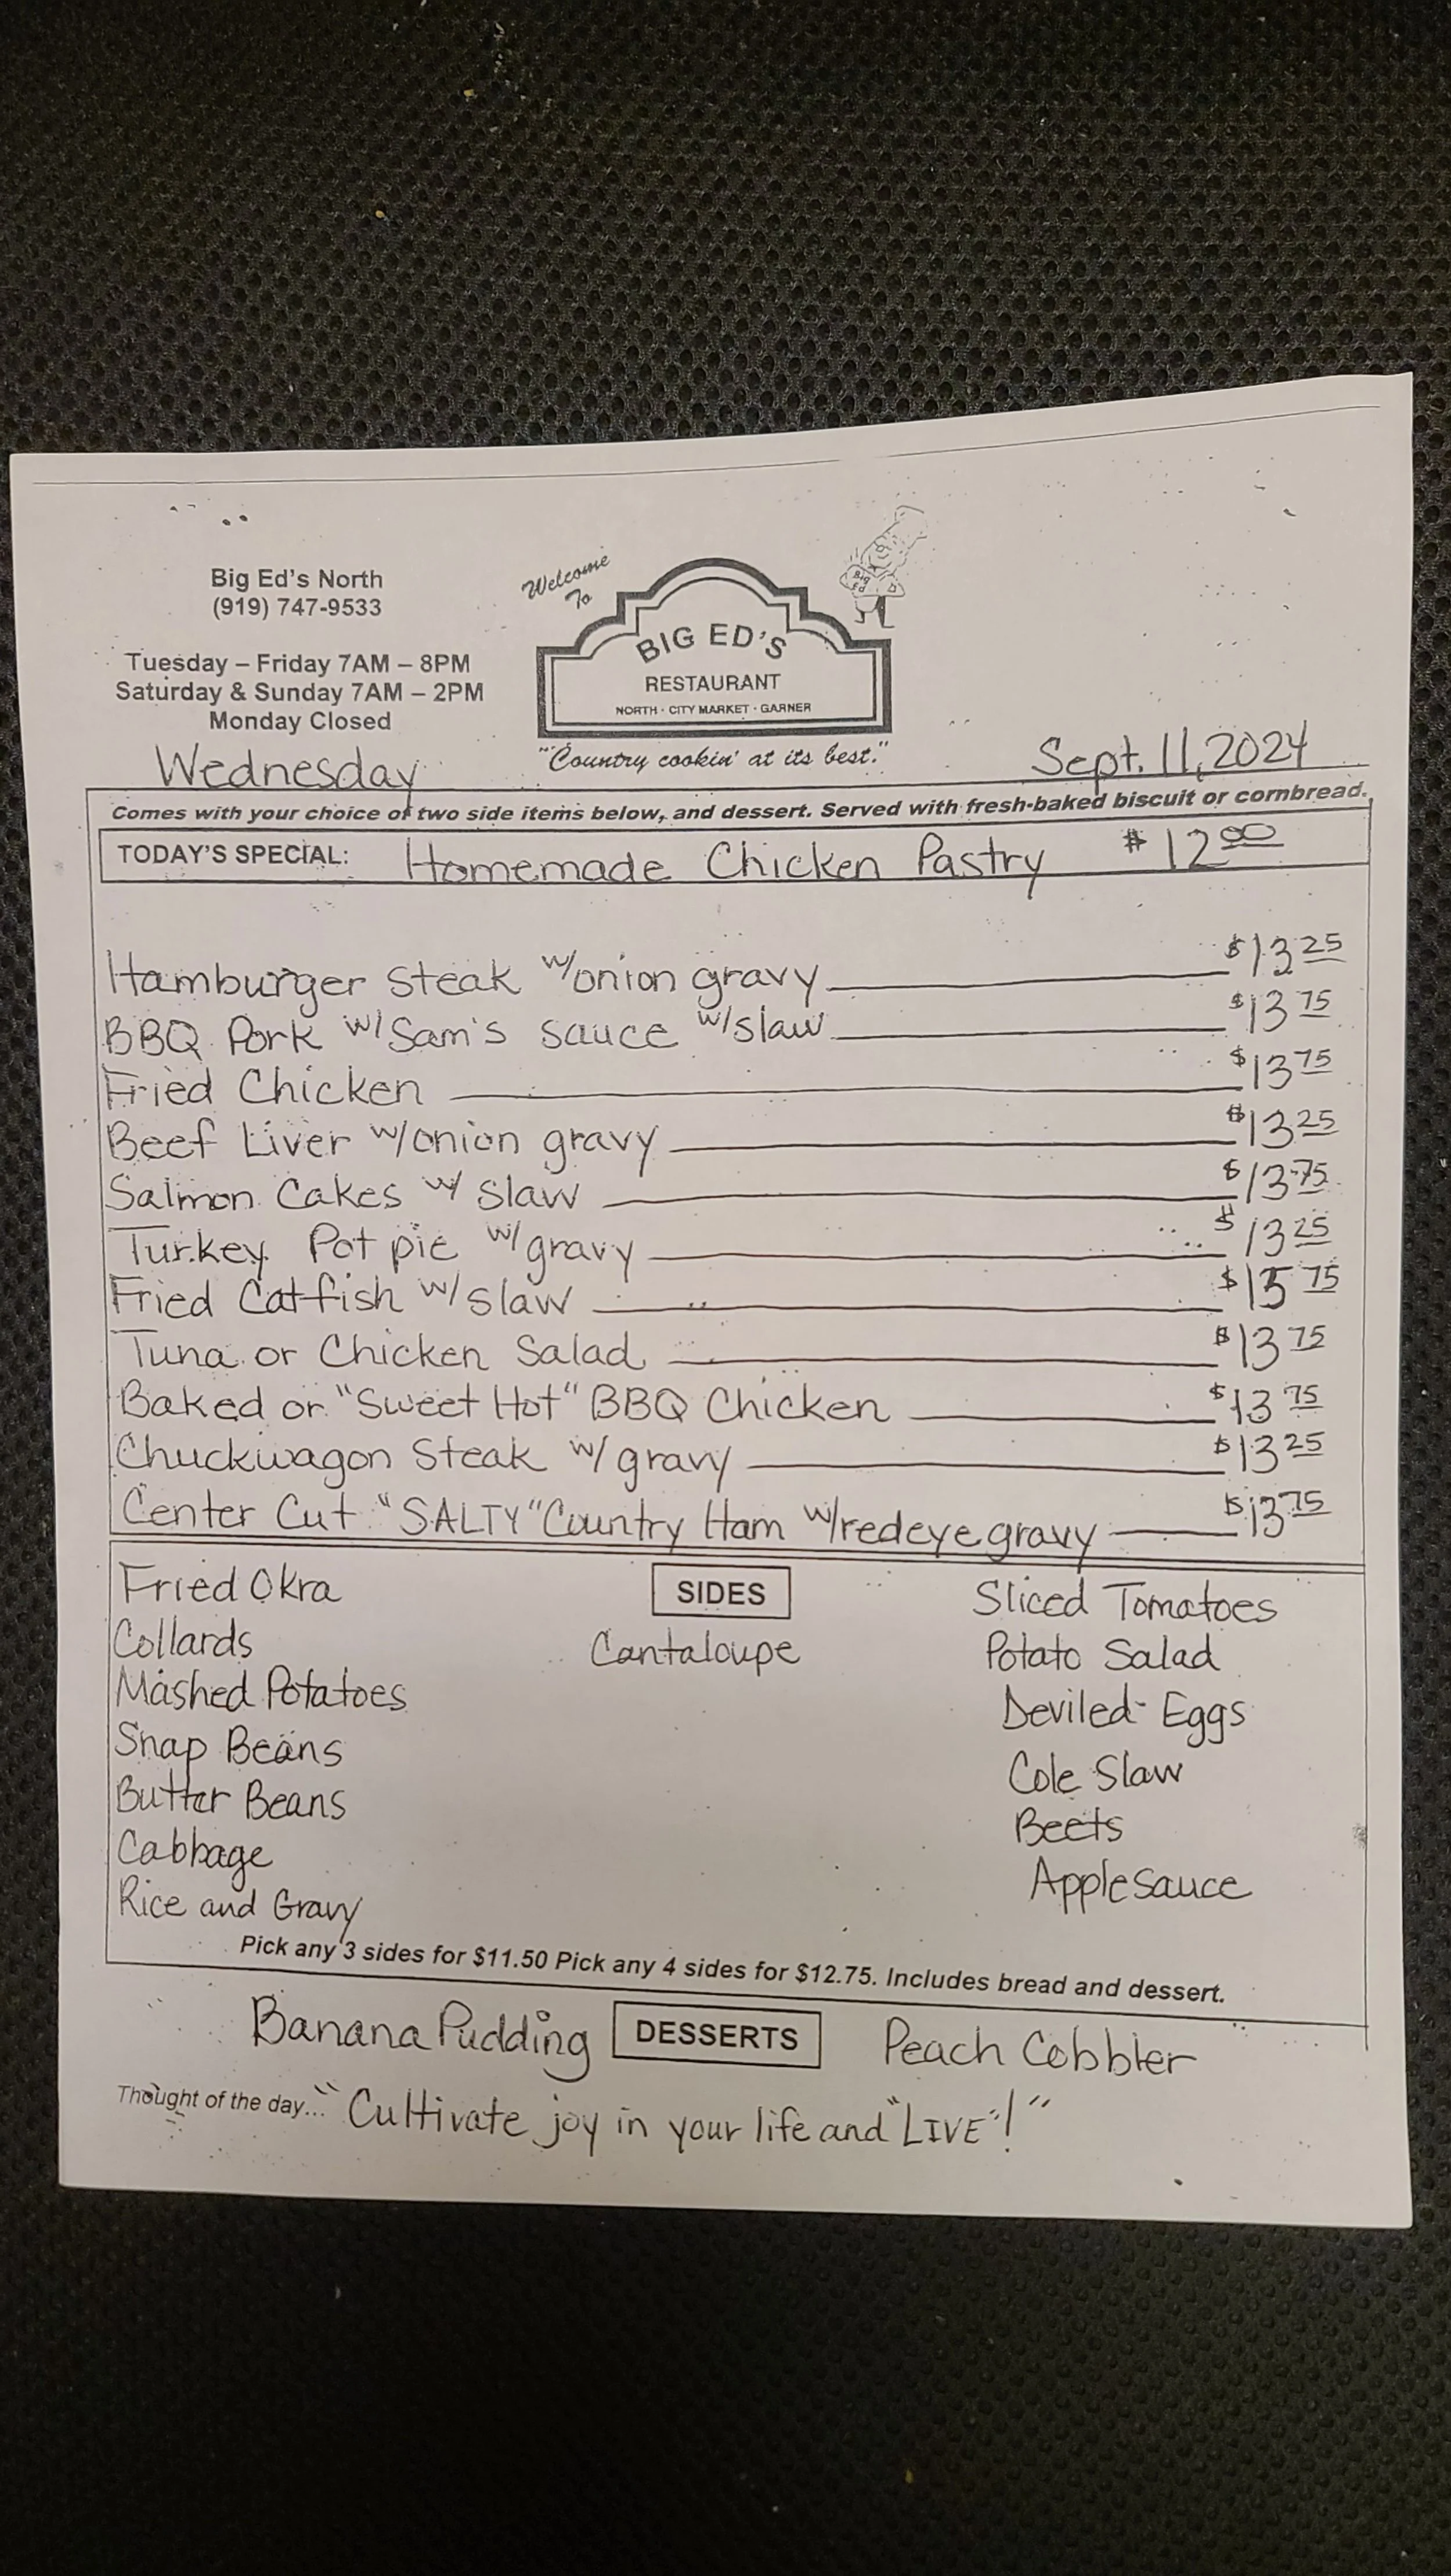 Big Ed's North
(919) 747-9533
Tuesday – Friday 7AM – 8PM
Saturday & Sunday 7AM – 2PM
Monday Closed
Welcome
To
Big Ed
BIG ED'S
RESTAURANT
NORTH · CITY MARKET · GARNER
"Country cookin' at its best."
Wednesday
Sept. 11, 2024
Comes with your choice of two side items below, and dessert. Served with fresh-baked biscuit or cornbread.
TODAY'S SPECIAL: Homemade Chicken Pastry $12.00
Hamburger Steak w/onion gravy $13.25
BBQ Pork w/Sam's sauce w/slaw $13.75
Fried Chicken $13.75
Beef Liver w/onion gravy $13.25
Salmon Cakes w/ slaw $13.75
Turkey Pot pie w/ gravy $13.25
Fried Catfish w/slaw $15.75
Tuna or Chicken Salad $13.75
Baked or "Sweet Hot" BBQ Chicken $13.75
Chuckwagon Steak w/ gravy $13.25
Center Cut "SALTY" Country Ham w/redeye gravy $13.75
SIDES
Fried Okra
Collards
Mashed Potatoes
Snap Beans
Butter Beans
Cabbage
Rice and Gravy
Cantaloupe
Sliced Tomatoes
Potato Salad
Deviled Eggs
Cole Slaw
Beets
Applesauce
Pick any 3 sides for $11.50 Pick any 4 sides for $12.75. Includes bread and dessert.
Banana Pudding DESSERTS Peach Cobbler
Thought of the day... "Cultivate joy in your life and "LIVE"!"